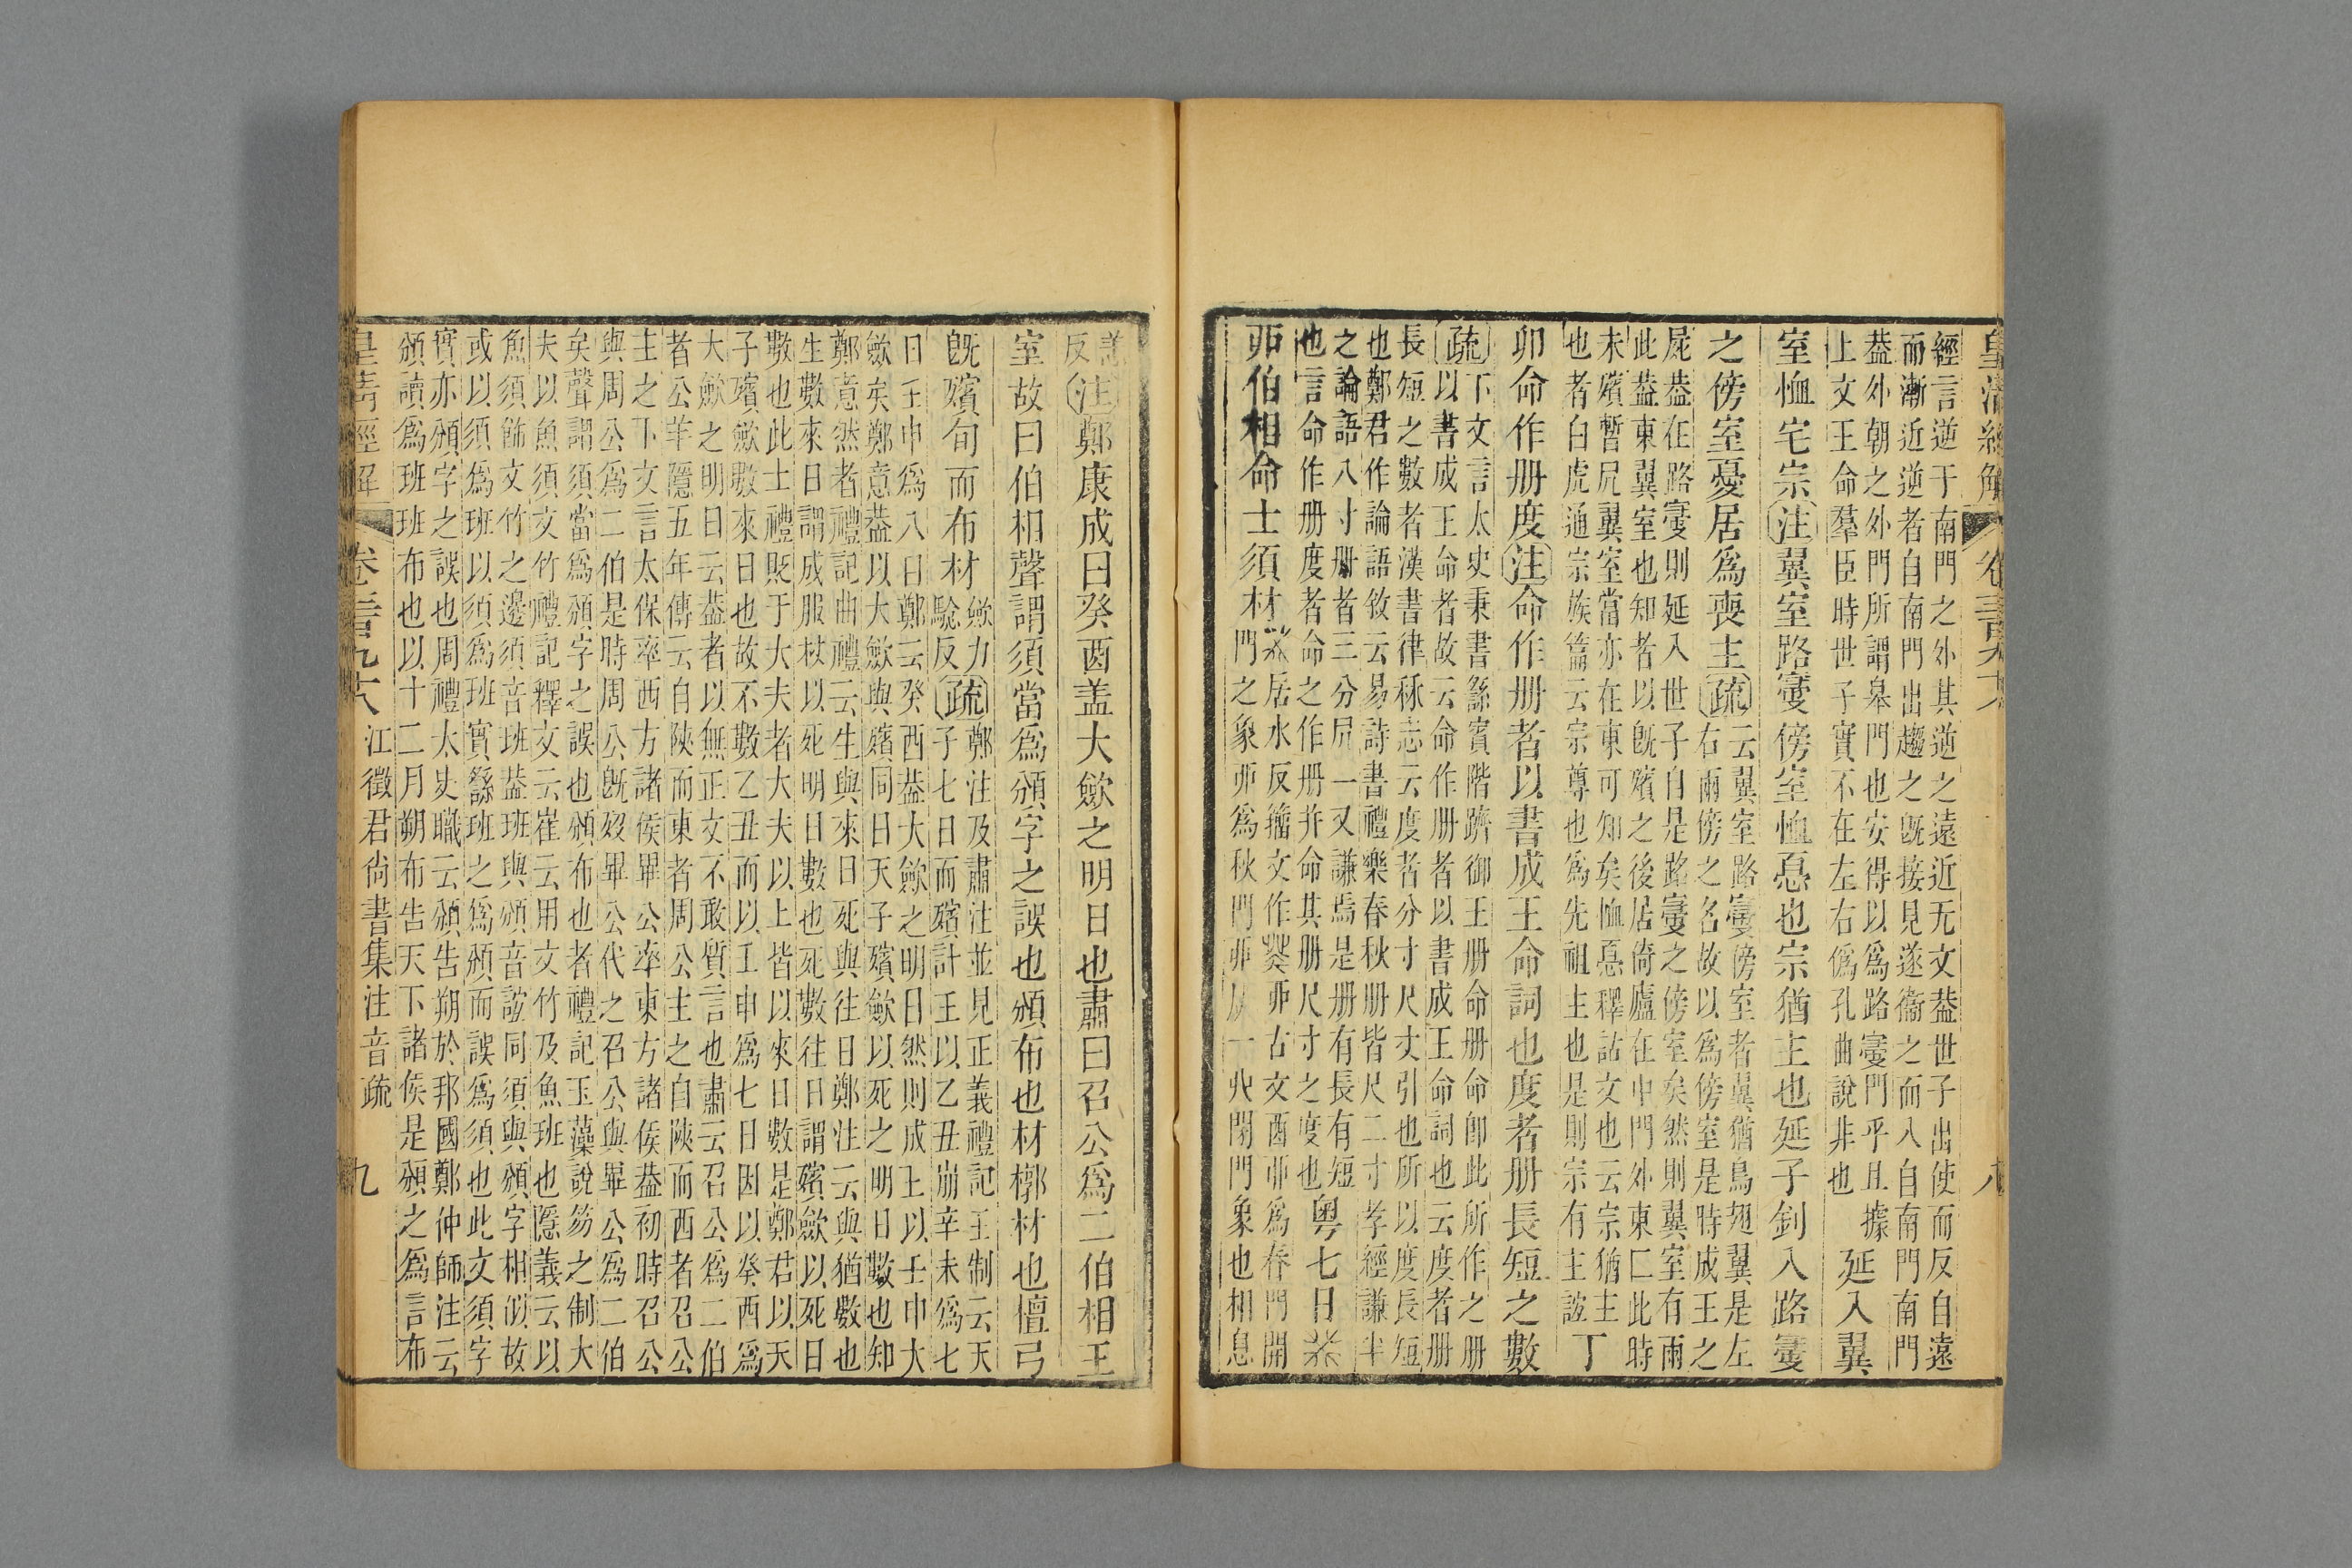 皇清經解 卷三百九十六 八
經言逆于南門之外其逆之遠近无文葢世子出使而反自遠
而漸近逆者自南門出趨之既接見遂衞之而入自南門南門
葢外朝之外門所謂皋門也安得以爲路𡨥門乎且據
上文王命羣臣時世子實不在左右僞孔曲說非也
延入翼
室恤宅宗注翼室路𡨥傍室恤㥛也宗猶主也延子釗入路𡨥
之傍室憂居爲喪主疏
云翼室路𡨥傍室者翼猶鳥翅翼是左
右兩傍之名故以爲傍室是時成王之
屍葢在路𡨥則延入世子自是路𡨥之傍室矣然則翼室有兩
此葢東翼室也知者以既殯之後居倚廬在中門外東匚此時
未殯暫凥翼室當亦在東可知矣恤㥛釋詁文也云宗猶主
也者白虎通宗族篇云宗尊也爲先祖主也是則宗有主誼
丁
卯命作册度注命作册者以書成王命詞也度者册長短之數
疏
下文言太史秉書繇賓階躋御王册命册命卽此所作之册
以書成王命者故云命作册者以書成王命詞也云度者册
長短之數者漢書律秝志云度者分寸尺丈引也所以度長短
也鄭君作論語敘云易詩書禮樂春秋册皆尺二寸孝經謙半
之論語八寸册者三分凥一又謙焉是册有長有短
也言命作册度者命之作册并命其册尺寸之度也
粵七日
丣伯相命士須材
居水反籒文作癸丣古文酉丣爲春門開
門之象丣爲秋門丣从一閉門象也相息
反注鄭康成曰癸酉葢大斂之明日也肅曰召公爲二伯相王
室故曰伯相聲謂須當爲頒字之誤也頒布也材槨材也檀弓
既殯旬而布材
斂力
驗反
疏
鄭注及肅注並見正義禮記王制云天
子七日而殯計王以乙丑崩辛未爲七
日壬申爲八日鄭云癸酉葢大斂之明日然則成王以壬申大
斂矣鄭意葢以大斂與殯同日天子殯斂以死之明日數也知
鄭意然者禮記曲禮云生與來日死與往日鄭注云與猶數也
生數來日謂成服杖以死明日數也死數往日謂殯斂以死日
數也此士禮貶于大夫者大夫以上皆以來日數是鄭君以天
子殯斂數來日也故不數乙丑而以壬申爲七日因以癸酉爲
大斂之明日云葢者以無正文不敢質言也肅云召公爲二伯
者公羊隱五年傳云自陝而東者周公主之自陝而西者召公
主之下文言太保率西方諸侯畢公率東方諸侯葢初時召公
與周公爲二伯是時周公既歿畢公代之召公與畢公爲二伯
矣聲謂須當爲頒字之誤也頒布也者禮記玉藻說笏之制大
夫以魚須文竹禮記釋文云崔云用文竹及魚班也隱義云以
魚須飾文竹之邊須音班葢班與頒音誼同須與頒字相似故
或以須爲班以須爲班實繇班之爲頒而誤爲須也此文須字
實亦頒字之誤也周禮太史職云頒告朔於邦國鄭仲師注云
頒讀爲班班布也以十二月朔布告天下諸侯是頒之爲言布
皇清經解 卷三百九十六 江徵君尙書集注音疏 九